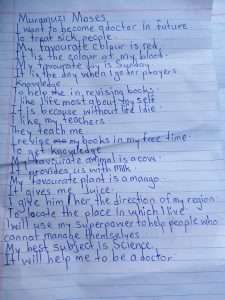 Murgajuzi Moses
I want to become a doctor in future
To treat sick people.
My favourate colour is red
It is the colour of my blood.
My favourate day is Sunday
It is the day when I go for prayers
Knowledge
To help me in revising books
I like life most about my self
It is because without life I die.
I like my teachers
They teach me
I revise my books in my free time.
To get knowledge
My favourate animal is a cow.
It provides us with milk
My favourate plant is a mango.
It gives me Juice.
I give him/her the direction of my region.
To locate the place in which I live.
I will use my superpower to help people who
cannot manage themselves
My best subject is Science.
It will help me to be a doctor